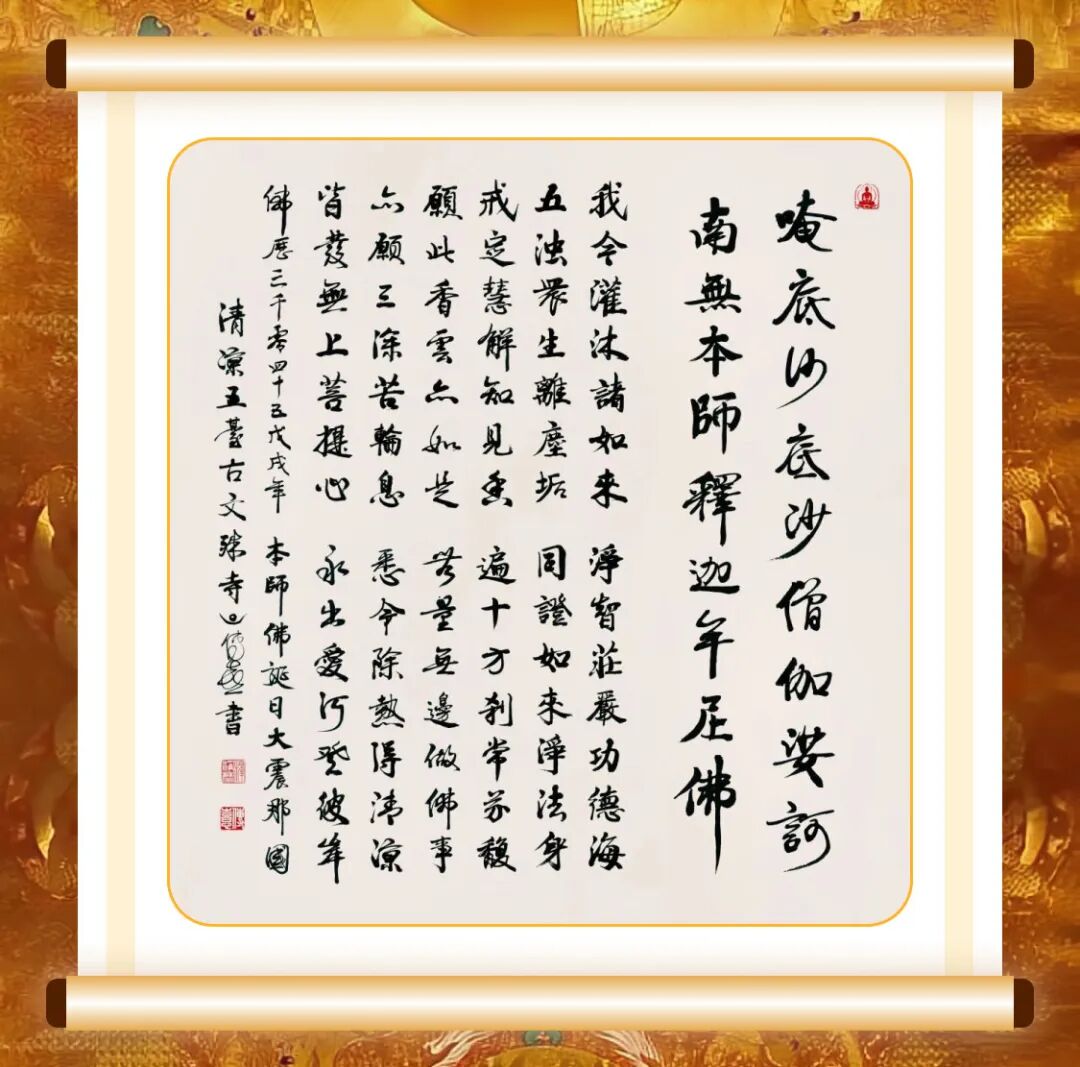 唵底沙底沙僧伽娑訶
南無本師釋迦牟尼佛
我今灌沐諸如來 淨智莊嚴功德海
五浊眾生離塵垢 同證如來淨法身
戒定慧解知見香 遍十方刹常芬馥
願此香雲亦如是 无量無邊做佛事
亦願三涂苦輪息 悉令除熱得清涼
皆發無上菩提心 永出愛河登彼岸
佛历三千零四十五戊戌年 本師佛誕日大震那國
清涼五臺古文殊寺 書